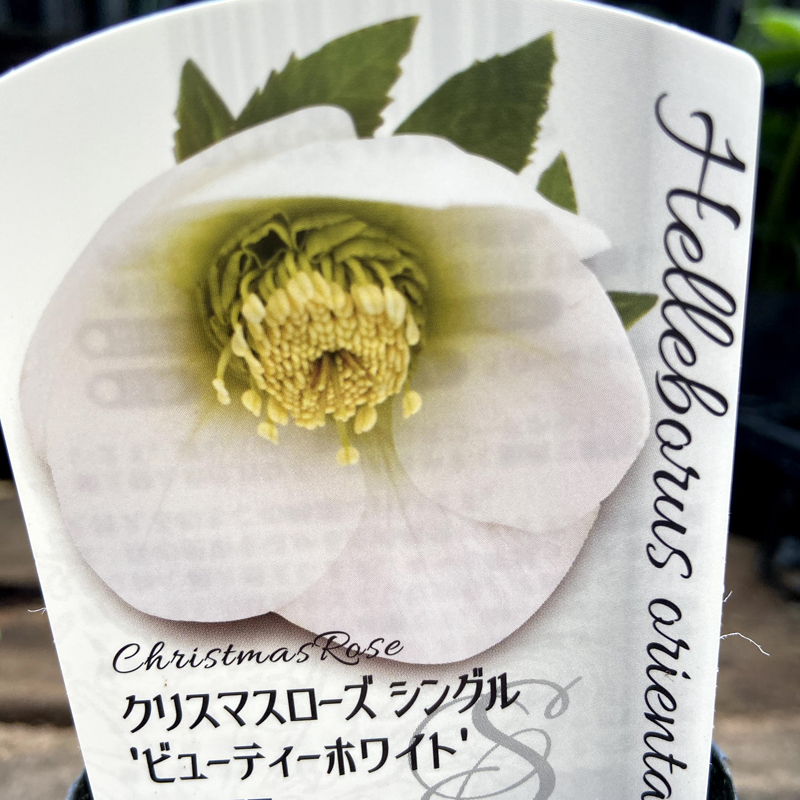 Helleborus orienta
Christmas Rose
クリスマスローズ シングル
'ビューティーホワイト'
S